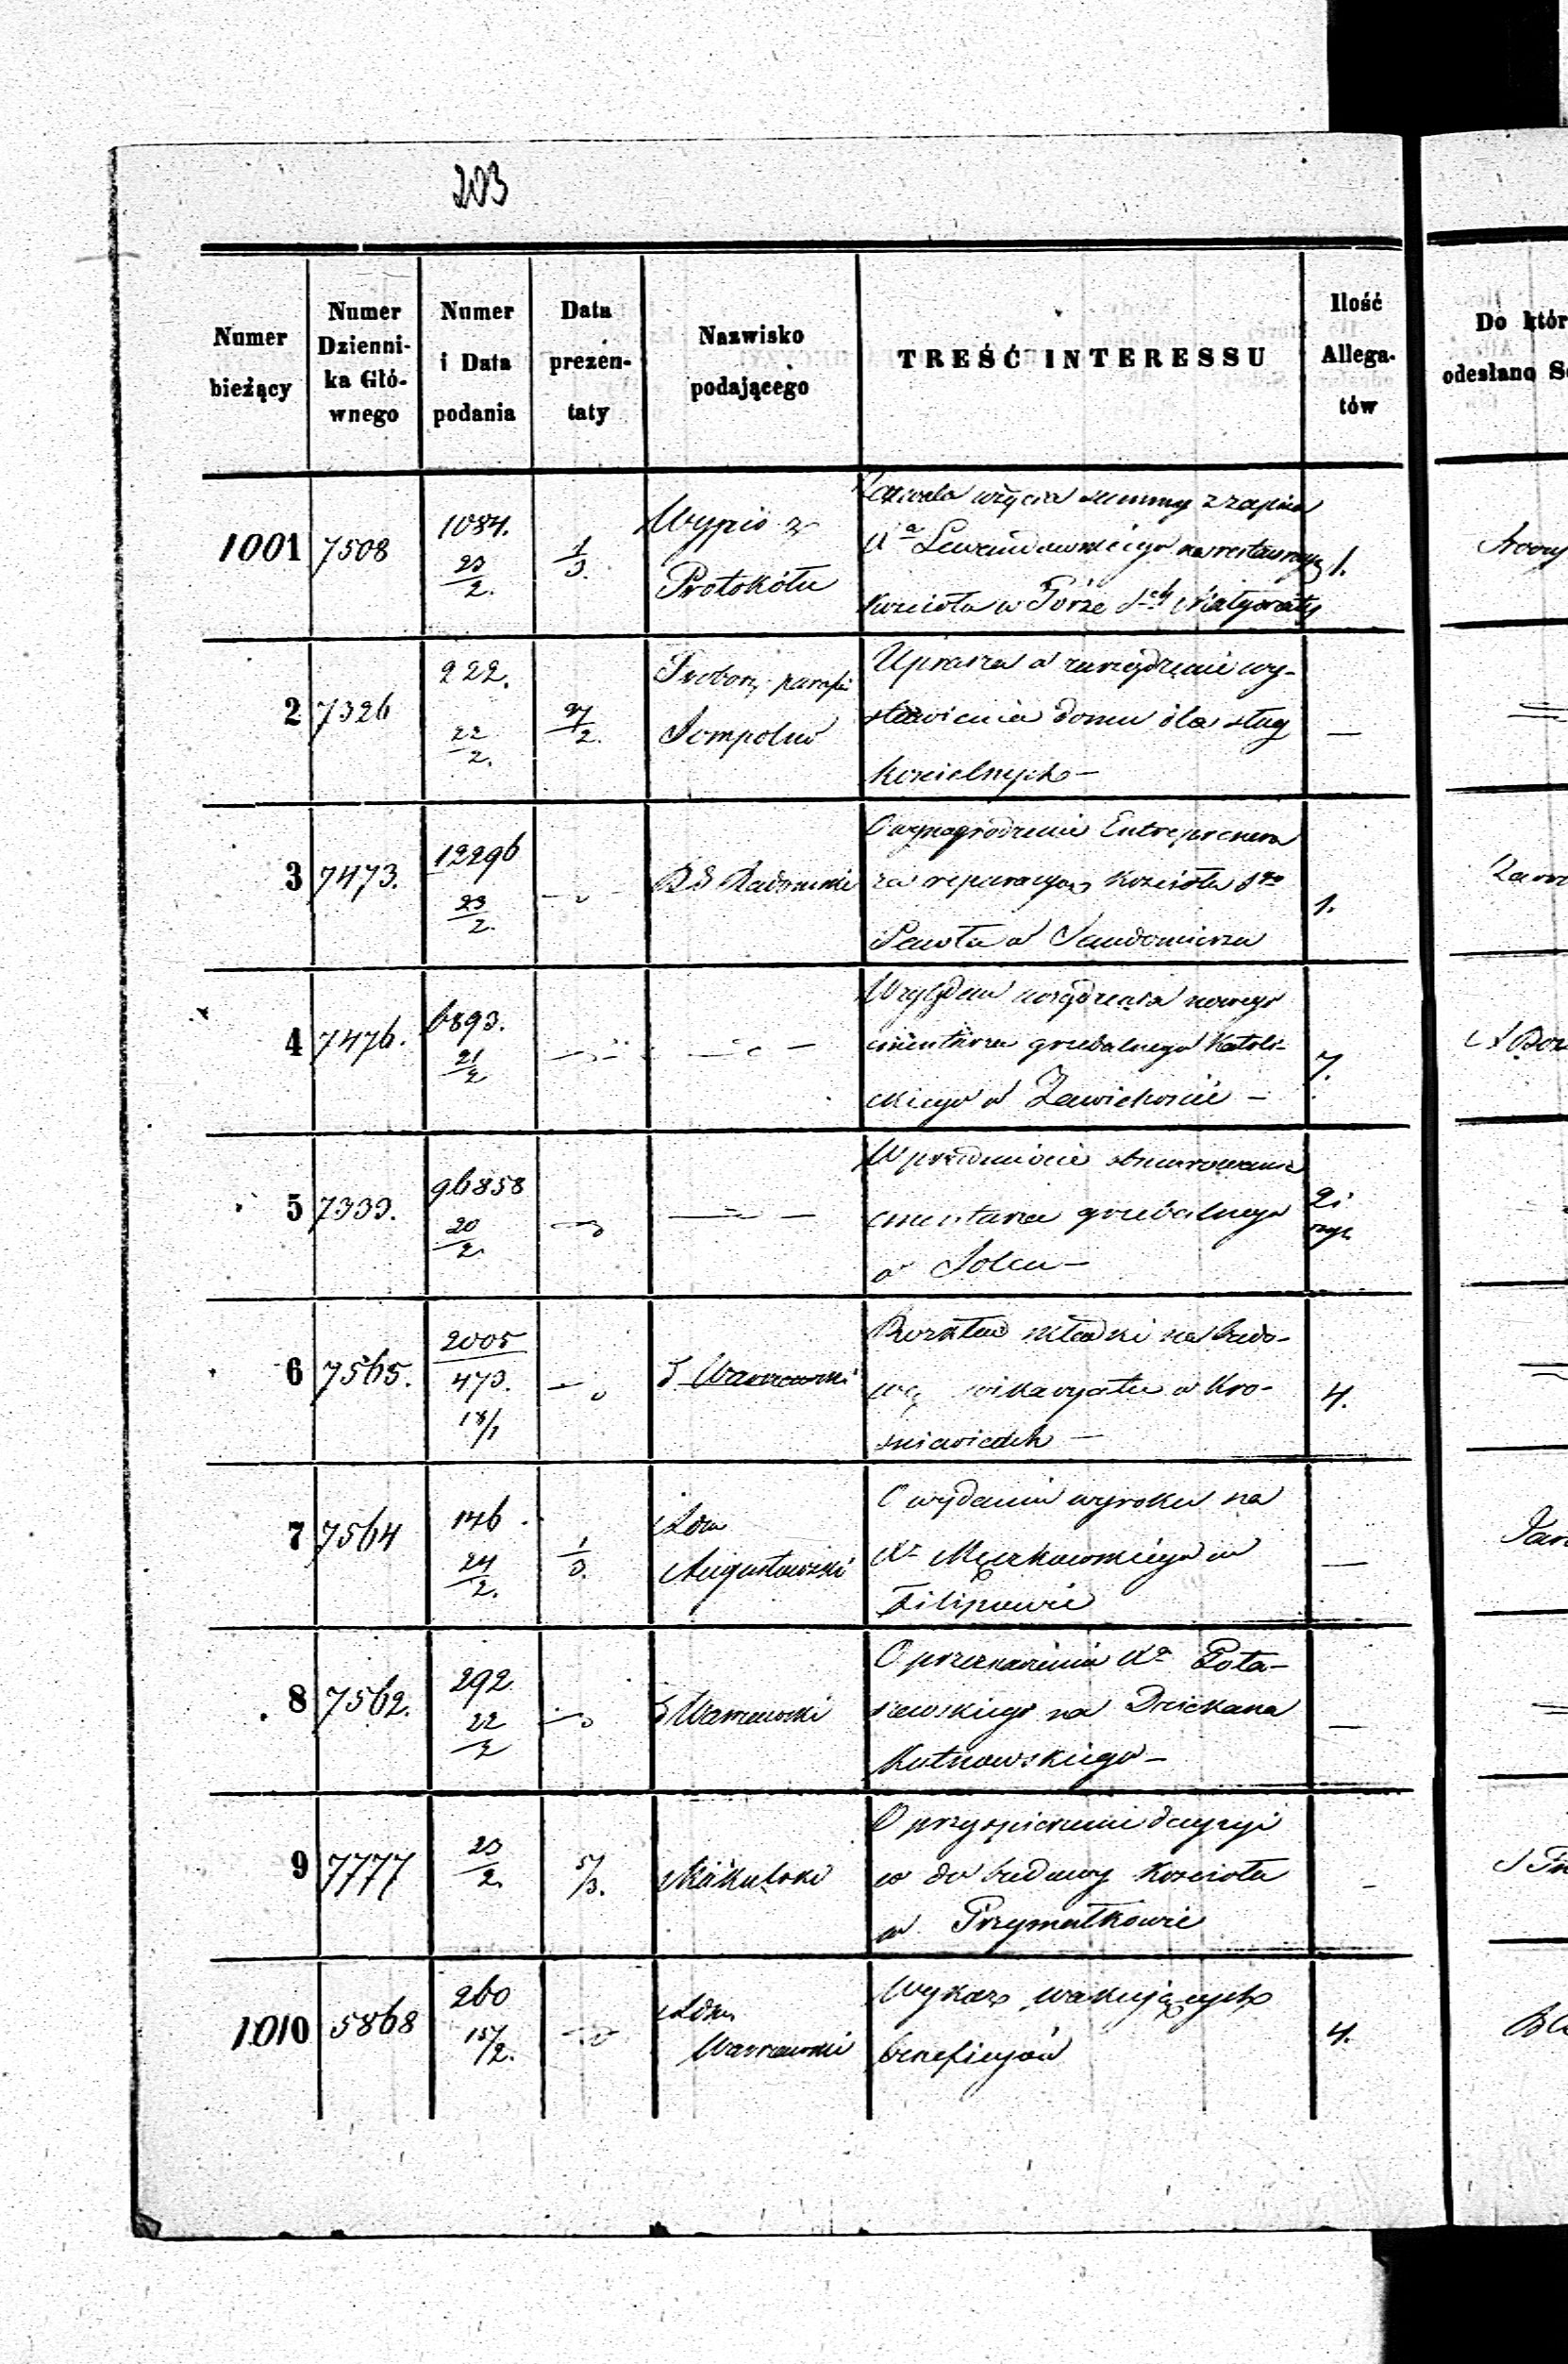 203
Numer bieżący
Numer Dzienni-ka Głó-wnego
Numer i Data podania
Data prezen-taty
Nazwisko podającego
TREŚĆ INTERESSU
Ilość Allega-tów
Do któr
odesłano
1001 7508 1084. 23/2. 1/3. Wypis z Protokółu
Zezwala użycia summy z zapisu
Xa Lewandowskiego na restauracyą 1.
Kościoła w Górze Sej Małgorzaty
2 7326 922. 22/2. 27/2. Probosz parafii Sompolno
Uprasza o zarządzenie wy-
stawienia domu dla sług —
Kościelnych —
3 7473. 12296 23/2. RG Radomski
O wynagrodzenie Entreprenera
za reperacyą Kościoła Sgo 1.
Pawła w Sandomierzu
4 7476. 6893. 21/2
Względem urządzenia nowego
cmentarza grzebalnego Katoli- 7.
ckiego w Zawichoście —
5 7333. 96858 20/2.
W przedmiocie obmurowania
cmentarza grzebalnego 2 i
w Solcu —
6 7565. 2005 473. 18/1 Warszawski
Rozkład składki na budo-
wę wikaryatu w Kro- 4.
śniewicach —
7 7564 146. 24/2. 1/3. Adm Augustowski
O wydaniu wyroku na
Xa w —
Filipowie
8 7562. 292 22/2 Warszawski
O przeznaczeniu Xa Pota-
szewskiego na Dziekana —
Kutnowskiego —
9 7777 23/2. 5/3. Mäkulski
O przyspieszenie decyzyi
co do budowy Kościoła -
w Przymułkowie
1010 5868 260 15/2. Adm Warszawski
Wykaz wakujących 4.
beneficyów